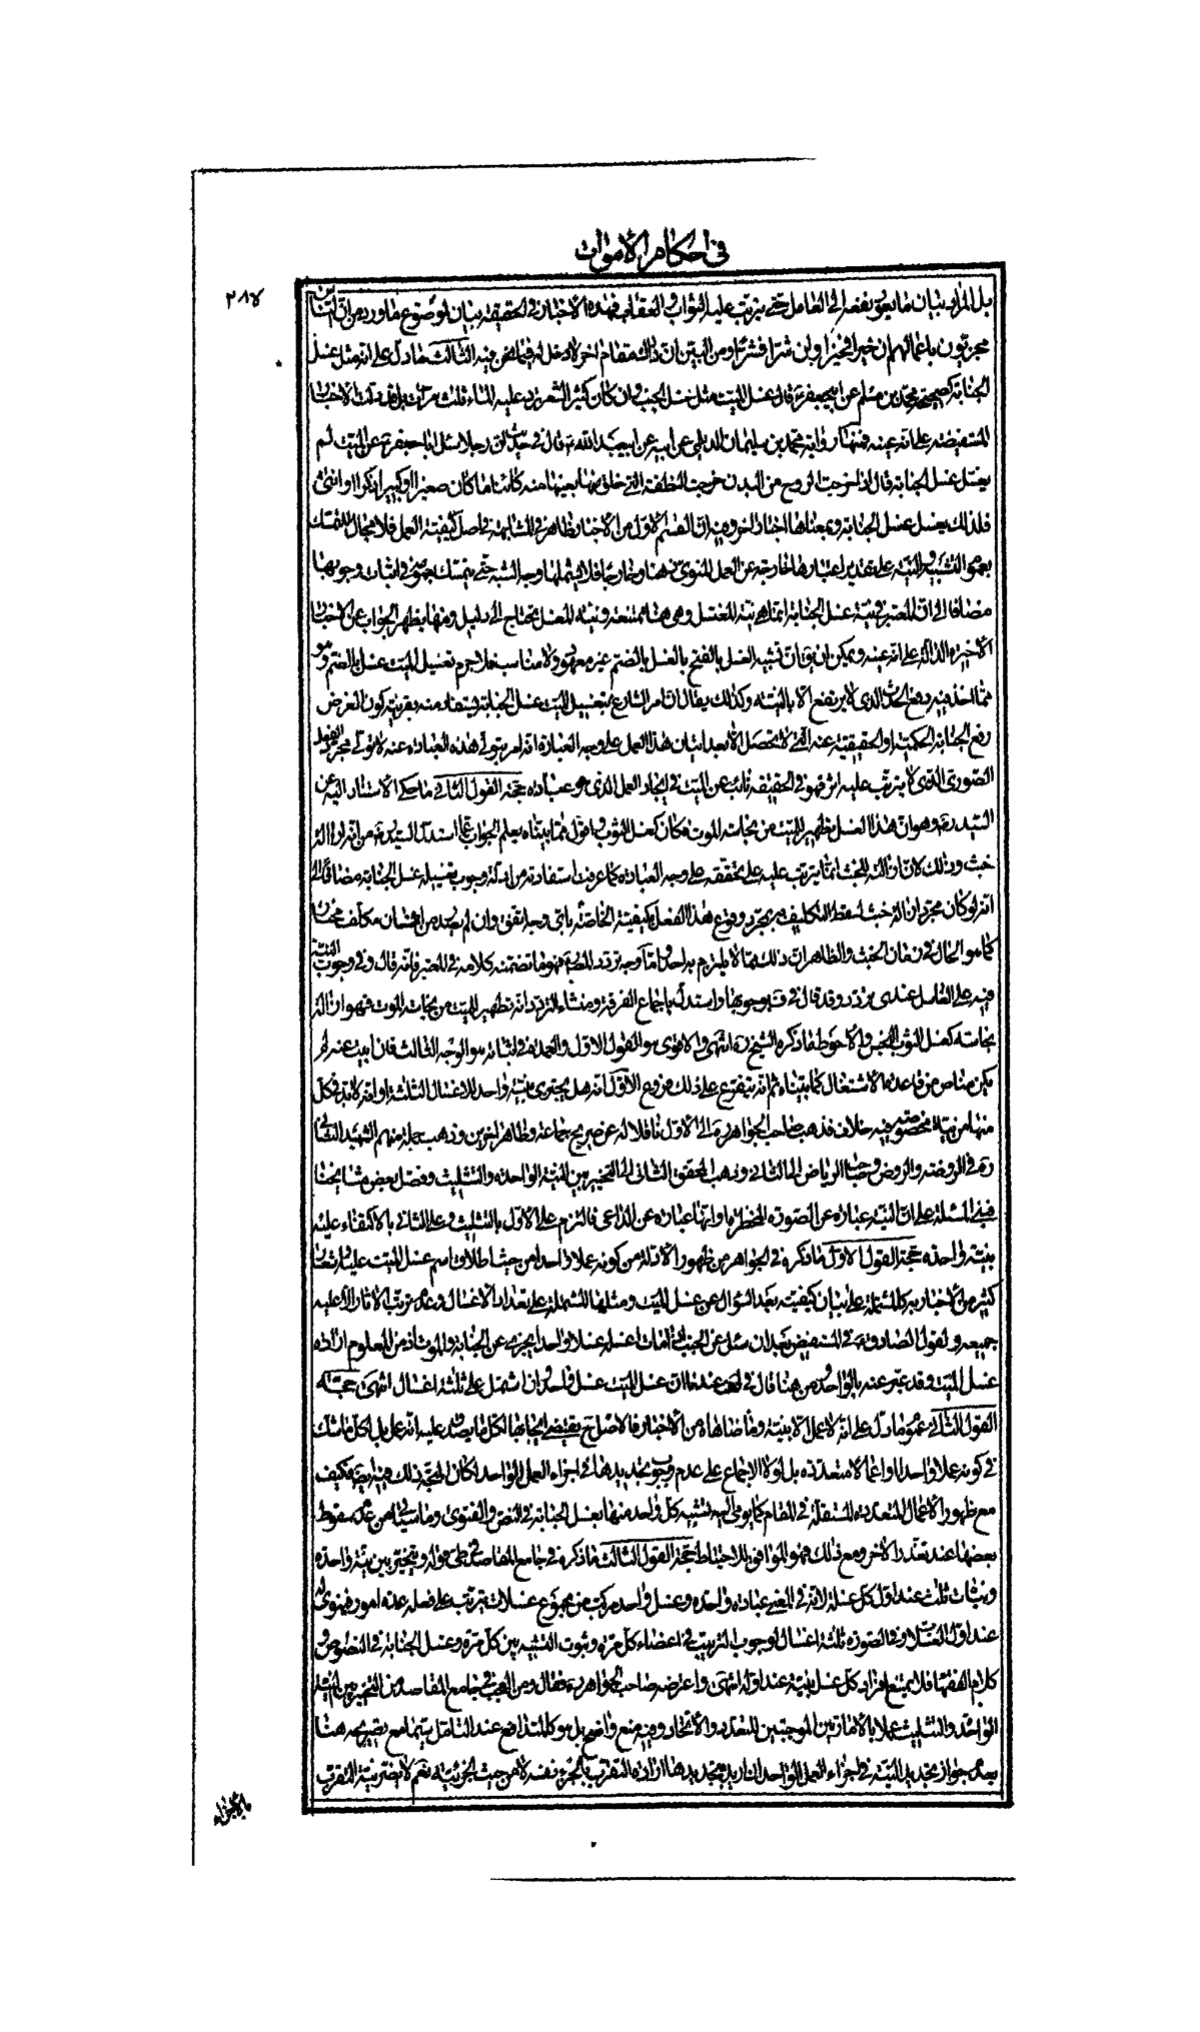 في احكام الاموات
بل المراد بيان ما يعود نفعه الى العامل حتى يترتب عليه الثواب والعقاب فهذه الاخبار في الحقيقة بيان لموضوع ما ورد من ان الناس
مجزيون باعمالهم ان خيرا فخيرا وان شرا فشرا ومن البين ان ذلك مقام اخر لا دخل له فيما نحن فيه الثالث ما دل على انه مثل غسل
الجنابة كصحيحة محمد بن مسلم عن ابي جعفر ع قال غسل الميت مثل غسل الجنب وان كان كثير الشعر فرد عليه الماء ثلث مرات بل قد دلت الاخبار
المستفيضة على انه عينه فمنها رواية محمد بن سليمان الديلمي عن ابيه عن ابيعبد الله ع قال في حديث ان رجلا سئل ابا جعفر ع عن الميت لم
يغسل غسل الجنابة قال اذا خرجت الروح من البدن خرجت النطفة التي خلق منها بعينها منه كائنا ما كان صغيرا او كبيرا ذكرا او انثى
فلذلك يغسل غسل الجنابة وبمعناها اخبار اخر وفيه ان القسم الاول من الاخبار ظاهر في المشابهة في اصل كيفية العمل فلا مجال للتمسك
بعموم التشبيه والنية على تقدير اعتبارها خارجة عن العمل المنوي ذهنا وخارجا فلا يشملها وجه الشبه حتى يتمسك بعمومه في اثبات وجوبها
مضافا الى ان المعتبر في نية غسل الجنابة انما هي نية المغتسل وهي هنا ممتنعة ونية الغاسل تحتاج الى دليل ومنها يظهر الجواب عن الاخبار
الاخيرة الدالة على انه عينه ويمكن ان يق ان تشبيه الغسل بالفتح بالغسل بالضم غير معهود ولا مناسب فلا جرم تغسيل الميت غسل بالضم وهو
مما اخذ فيه رفع الحدث الذي لا يرتفع الا بالنية وكذلك يقال ان امر الشارع بتغسيل الميت غسل الجنابة يستفاد منه بقرينة كون الغرض
رفع الجنابة الحكمية او الحقيقية عنه التي لا تحصل الا بعد اتيان هذا العمل على وجه العبادة انه امر بتولي هذه العبادة عنه لا تولي مجرد الفعل
الصوري الذي لا يترتب عليه اثر فهو في الحقيقة نائب عن الميت في ايجاد العمل الذي هو عبادة حجة القول الثاني ما حكي الاستناد اليه عن
السيد ره وهو ان هذا الغسل تطهير للميت من نجاسة الموت فكان كغسل الثوب واقول مما بيناه يعلم الجواب عما استدل السيد ره من انه ازالة
خبث وذلك لان ازالته للخبث انما يترتب عليه على تحققه على وجه العبادة كما عرفت استفادته من ادلة وجوب تغسيله غسل الجنابة مضافا الى
انه لو كان مجرد ازالة خبث لسقط التكليف به بمجرد وقوع هذا الفعل بكيفيته الخاصة باي وجه اتفق وان لم يصدر من انسان مكلف مختار
كما هو الحال في الخبث والظاهر ان ذلك مما لا يلتزم به احد واما وجه تردد المص فهو ما تضمنه كلامه في المعتبر فانه قال وفي وجوب النية
فيه على الغاسل عندي تردد وقد قال في ف بوجوبها واستدل باجماع الفرقة ومنشاء التردد انه تطهير للميت من نجاسة الموت فهو ازالة
نجاسة كغسل الثوب النجس والاحوط ما ذكره الشيخ ره انتهى والاقوى هو القول الاول والعمدة في اثباته هو الوجه الثالث فان ابيت عنه لم
يكن مناص من قاعدة الاشتغال كما بيناه ثم انه يتفرع على ذلك فروع الاول انه هل يجتزى بنية واحدة للاغسال الثلثة او انه لا بد في كل
منها من نية مخصوصة فيه خلاف فذهب صاحب الجواهر ره الى الاول ناقلا له عن صريح جماعة وظاهر اخرين وذهب جملة منهم الشهيد الثاني
ره في الروضة والروض وصاحب الرياض الى الثاني وذهب المحقق الثاني الى التخيير بين النية الواحدة والتثليث وفصل بعض مشايخنا
فبنى المسئلة على ان النية عبارة عن الصورة المخطرة او انها عبارة عن الداعي فالتزم على الاول بالتثليث وعلى الثاني بالاكتفاء عليه
بنية واحدة حجة القول الاول ما ذكره في الجواهر من ظهور الادلة من كونه عملا واحدا من حيث اطلاق اسم غسل الميت عليه
كثير من الاخبار به كالمشتملة على بيان كيفيته بعد السؤال عن غسل الميت ومثلها المشتملة على تعداد الاغسال وعدم ترتب الاثار الا عليه
جميعه ولقول الصادق ع في المستفيض بعد ان سئل عن الجنب اذا مات اغسله غسلا واحدا يجزي عن الجنابة والموت اذ من المعلوم ارادة
غسل الميت وقد عبر عنه بالواحد ومن هنا قال في عندنا ان غسل الميت غسل واحد وان اشتمل على ثلثة اغسال انتهى حجة
القول الثاني عموم ما دل على انه لا عمل الا بنية وما ضاهاه من الاخبار فالاصل ح يقتضي ايجابها لكل ما يصدق عليه انه عمل بل لكل ما شك
في كونه عملا واحدا او اعمالا متعددة بل لولا الاجماع على عدم وجوب تجديدها في اجزاء العمل الواحد لكان المتجه ذلك فيه ايضا فكيف
مع ظهور الاعمال المتعددة المستقلة في المقام كما يومي اليه تشبيه كل واحد منها بغسل الجنابة في النص والفتوى وما سيأتي من عدم سقوط
بعضها عند تعذر الاخر ومع ذلك فهو الموافق للاحتياط حجة القول الثالث ما ذكره في جامع المقاصد في طي قوله ويتخير بين نية واحدة
ونيات ثلث عند اول كل غسلة لانه في المعنى عبادة واحدة وغسل واحد مركب من مجموع غسلات يترتب على فعله عدة امور فينوي له
عند اول الغسلات وفي الصورة ثلثة اغسال لوجوب الترتيب في اعضاء كل مرة وثبوت التشبيه بين كل مرة وغسل الجنابة في النصوص و
كلام الفقهاء فلا يمتنع افراد كل غسل بنية عند اوله انتهى واعترضه صاحب الجواهر ره فقال ومن العجب في جامع المقاصد من التخيير بين النية
الواحدة والتثليث عملا بالامارتين الموجبتين للتعدد والاتحاد وفيه منع واضح بل هو كالمتدافع عند التامل سيما مع تصريحه هنا
بعدم جواز تجديد النية في اجزاء العمل الواحد ان اريد بتجديدها ارادة التقرب بالجزء نفسه لا من حيث الجزئية نعم لا يضر نية التقرب
بالاجزاء